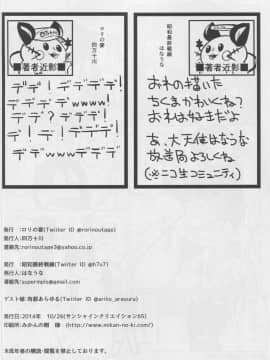 ロリの宴
四万十川
■著者近影■
デデ!デデデデ!
デデデデwww!
デデデデデデ?
wwwデデデデ
昭和最終戦線
はなうな
■著者近影■
おれの描いた
ちくまかわいくね?
おれは好きだよ
あ、大天使はなうな
放送局よろしくね。
(※ニコ生コミュニティ)
発行 :ロリの宴(Twitter ID @rorinoutage)
発行人:四万十川
連絡先:rorinoutage3@yahoo.co.jp
発行 :昭和最終戦線(Twitter ID @h7u7)
発行人:はなうな
連絡先:supermels@gmail.com
ゲスト様:有都あらゆる(Twitter ID @arito_arayuru)
発行日:2014年 10/26(サンシャインクリエイション65)
印刷所:みかんの樹 様 (http://www.mikan-no-ki.com/)
未成年者の購読・閲覧を禁止しております。